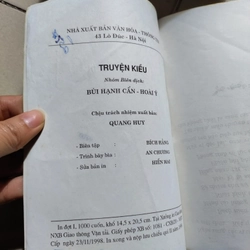 NHÀ XUẤT BẢN VĂN HÓA - THÔNG TIN
43 Lò Đúc - Hà Nội
TRUYỆN KIỀU
Nhóm Biên dịch:
BÙI HẠNH CẨN - HOÀI Ý
Chịu trách nhiệm xuất bản:
QUANG HUY
- Biên tập BÍCH HẰNG
- Trình bày bìa : AN CHƯƠNG
- Sửa bản in :
In đợt I, 1000 cuốn, khổ 14,5 x 20,5 cm. Tại Xưởng in
NXB Giao thông Vận tải. Giấy phép XB số
Cấp ngày 23/11/1998. In xong và nộp lưu chiểu